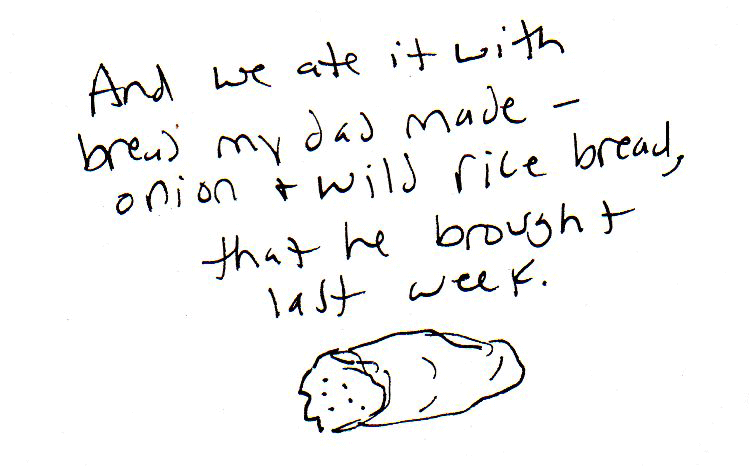 And we ate it with
bread my dad made –
onion + wild rice bread,
that he brought
last week.